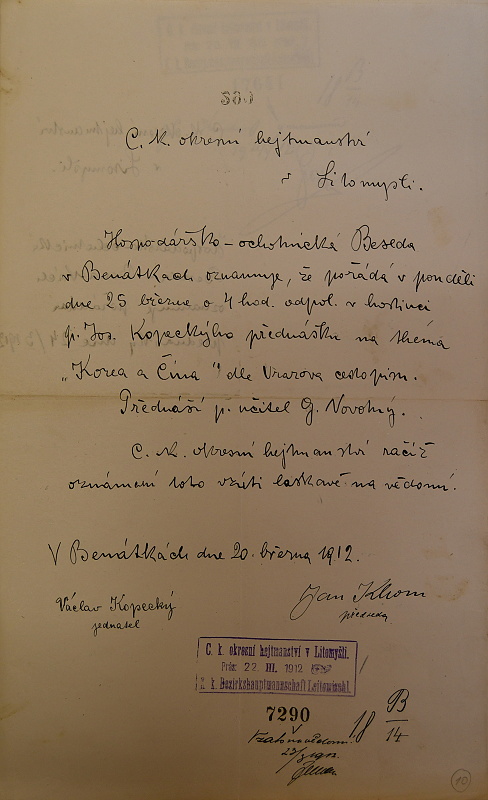 C. k. okresní hejtmanství
v Litomyšli.
Hospodářsko-ochotnická Beseda
v Benátkách oznamuje, že pořádá v pondělí
dne 25 března o 4 hod. odpol. v hostinci
p. Jos. Kopeckého přednášku na thema
„Korea a Čína" dle Vrazova cestopisu.
Přednáší p. učitel G. Novotný.
C. k. okresní hejtmanství račiž
oznámení toto vzíti laskavě na vědomí.
V Benátkách dne 20. března 1912.
Václav Kopecký
jednatel
Jan Klom
předseda
C. k. okresní hejtmanství v Litomyšli.
Präs. 22. III. 1912
K. k. Bezirkshauptmannschaft Leitomischl.
7290
18 B/14
Vzato na vědomí
10